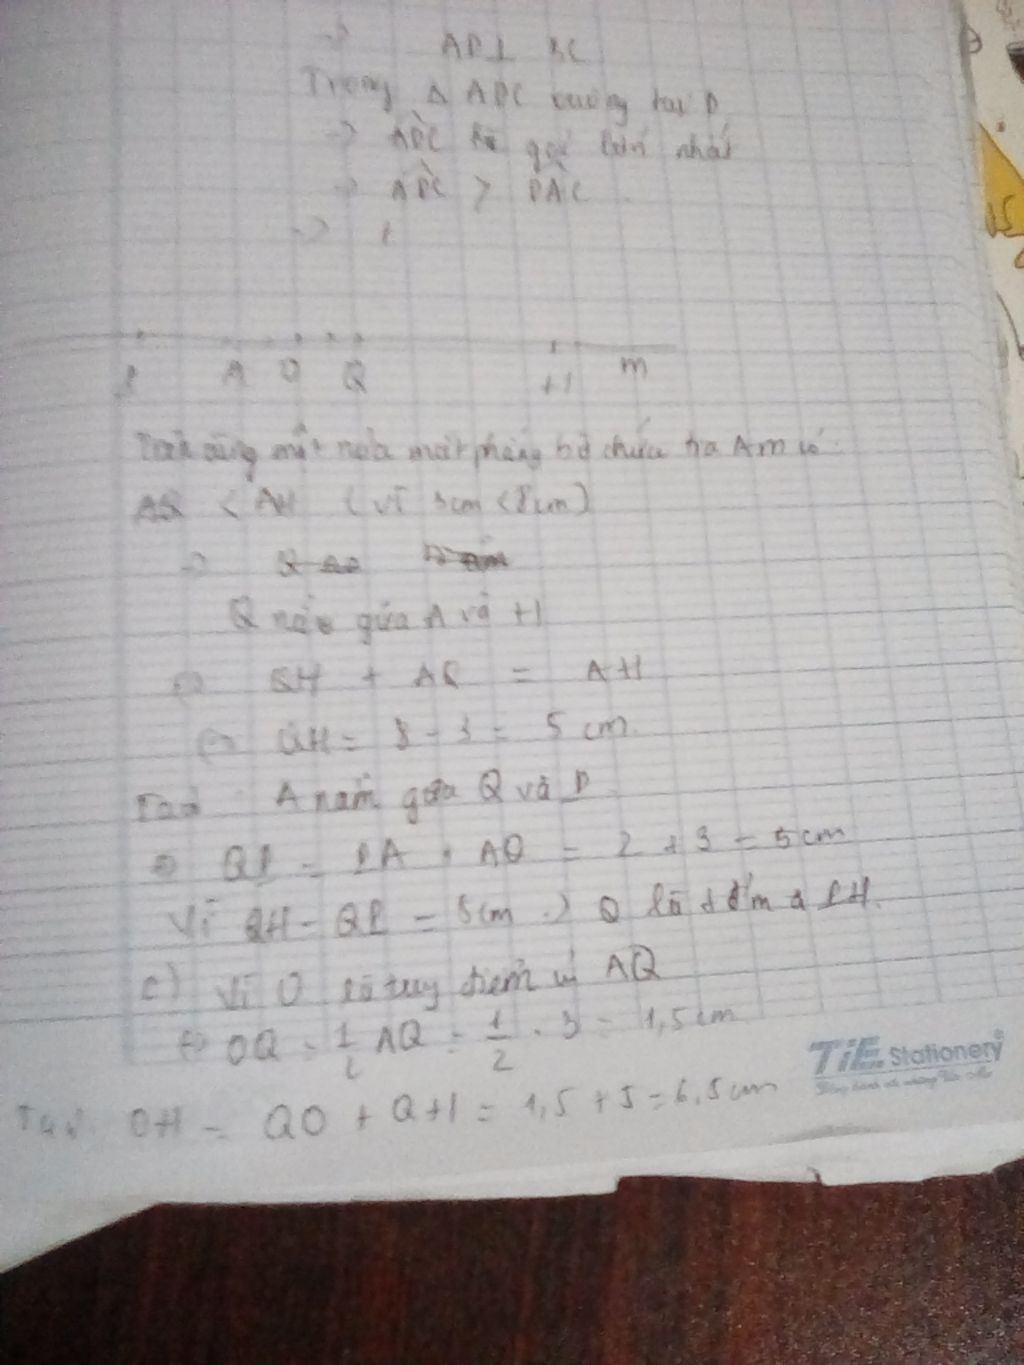 → AD ⊥ BC
Trong Δ ADC vuông tại D
→ ADC là góc lớn nhất
→ ADC > DAC
→
A O Q H m
Trên cùng một nửa mặt phẳng bờ chứa tia Am có
AQ < AH (vì 3cm < 8cm)
→
Q nằm giữa A và H
⇔ QH + AQ = AH
⇔ QH = 8 - 3 = 5 cm
Ta có A nằm giữa Q và P
⇒ QP = PA + AQ = 2 + 3 = 5cm
Vì QH = QP = 5cm → Q là PH.
c) Vì O là trung điểm AQ
⇔ OQ = 1/2 AQ = 1/2 . 3 = 1,5cm
TiE Stationery
Ta có OH = QO + QH = 1,5 + 5 = 6,5cm